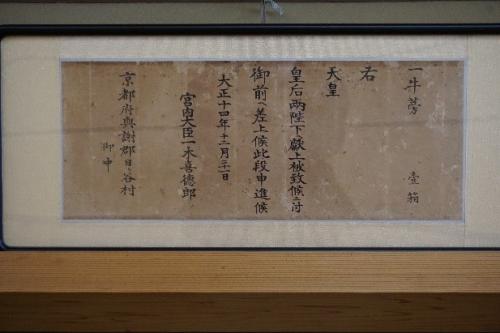 一牛蒡 壹箱
右
天皇
皇后両陛下献上被致候ニ付
御前ヘ差上候此段申進候
大正十四年十二月二十一日
宮内大臣一木喜徳郎
京都府與謝郡日ヶ谷村
御中